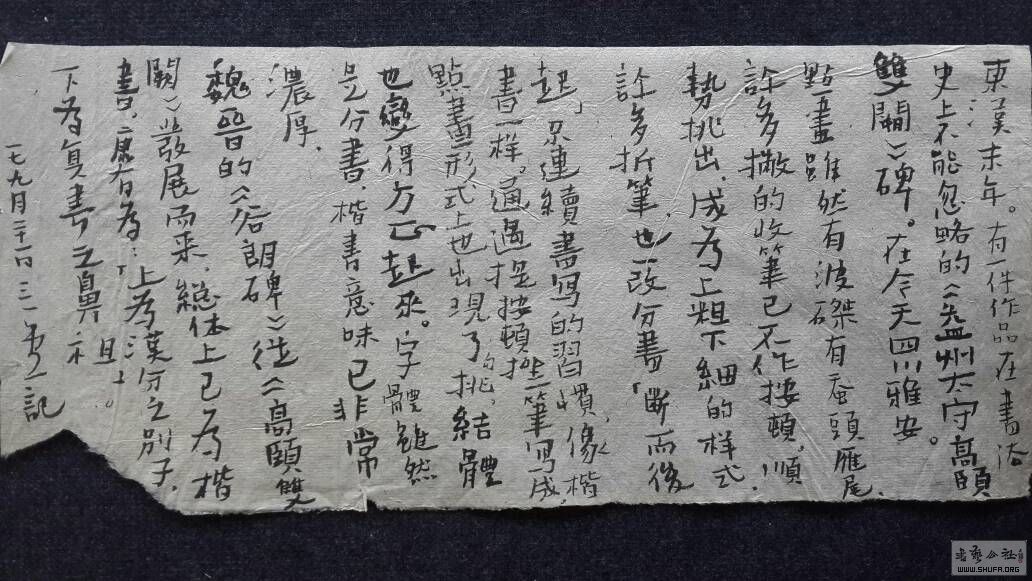 東漢末年。有一件作品在書法
史上不能忽略的《益州太守高頤
雙闕》碑。在今天四川雅安。
點畫雖然有波磔有蚕頭雁尾,
許多撇的收筆已不作按頓。順
勢挑出,成为上粗下細的樣式。
許多折筆,也一改分書「斷而後
起」,只連續書写的習慣,像楷
書一样。通過提按頓挫一筆写成,
點畫形式上也出現了的挑,結體
也變得方正起來。字體雖然
是分書,楷書意味已非常
濃厚。
魏晋的《谷朗碑》從《高頤雙
闕》發展而来,總体上已为楷
書,康有为:「上为漢分之別子,
下为真書之鼻祖」。
一七九月三十一日 記
書藝公社
WWW.SHUFA.ORG